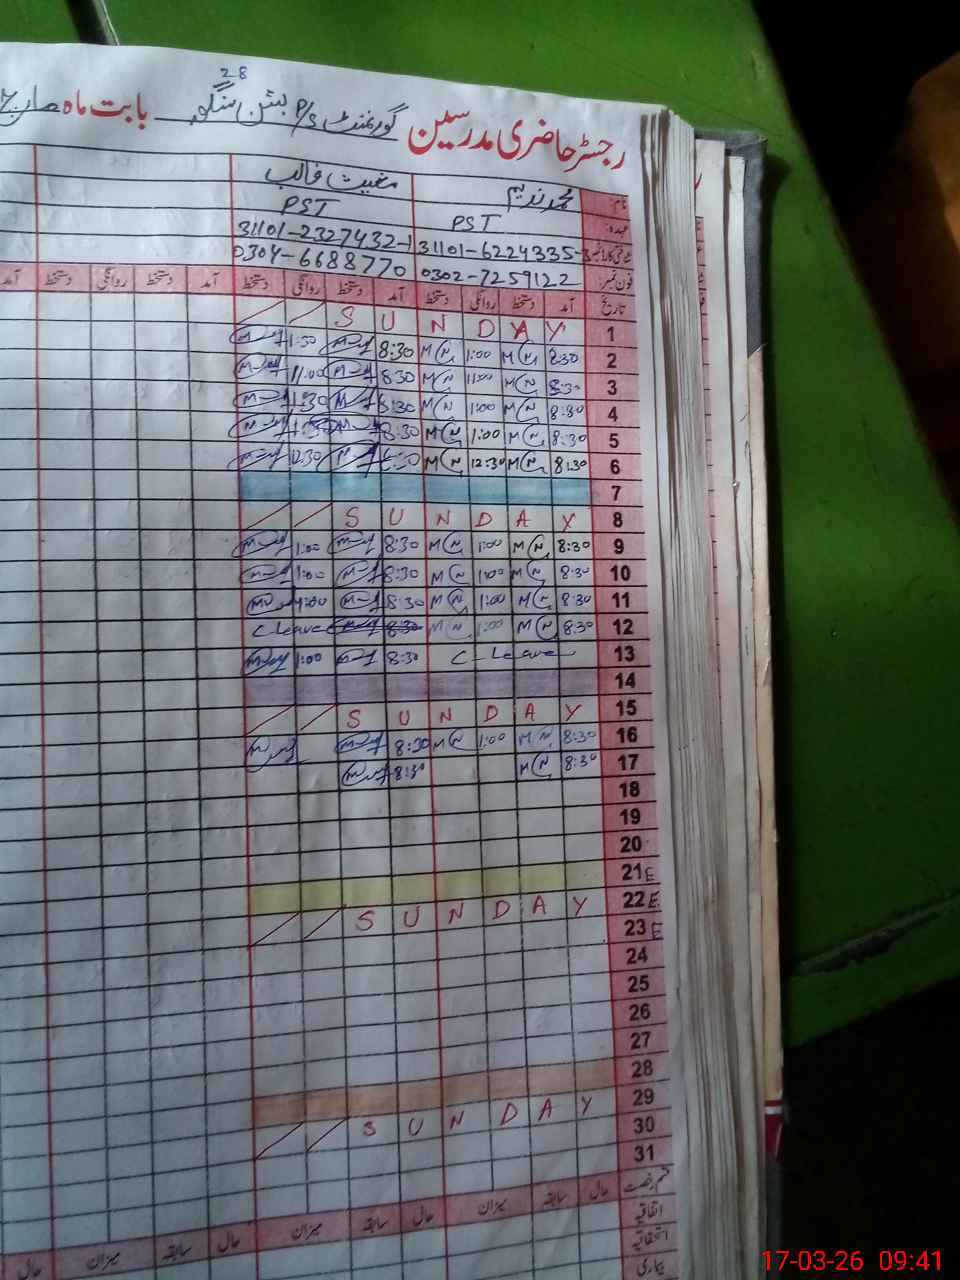 28
رجسٹر حاضری مدرسین گورنمنٹ P/S بابت ماہ مارچ
نام: محمد ندیم مغیث غالب
عہدہ: PST PST
شناختی کارڈ نمبر 31101-6224335-3 31101-2327432-1
فون نمبر: 0302-7259122 0304-6688770
تاریخ آمد دستخط روانگی دستخط آمد دستخط روانگی دستخط آمد دستخط روانگی دستخط آمد
1 S U N D A Y
2 8:30 M N 1:00 M N 8:30 1:30
3 8:30 M N 11:00 M N 8:30 11:00
4 8:30 M N 1:00 M N 8:30 1:30
5 8:30 M N 1:00 M N 8:30
6 8:30 M N 12:30 M N 12:30
7
8 S U N D A Y
9 8:30 M N 1:00 M N 8:30 1:00
10 8:30 M N 1:00 M N 8:30 1:00
11 8:30 M N 1:00 M N 8:30 1:00
12 8:30 M N 1:00 M N 8:30 C leave
13 C-Leave 8:30 1:00
14
15 S U N D A Y
16 8:30 M N 1:00 M N 8:30
17 8:30 M N 8:30
18
19
20
21 E
22 E S U N D A Y
23 E
24
25
26
27
28
29 S U N D A Y
30
31
قسم رخصت حال سابقہ میزان حال سابقہ میزان حال سابقہ میزان حال
اتفاقیہ
استحقاقیہ
بیماری
17-03-26 09:41